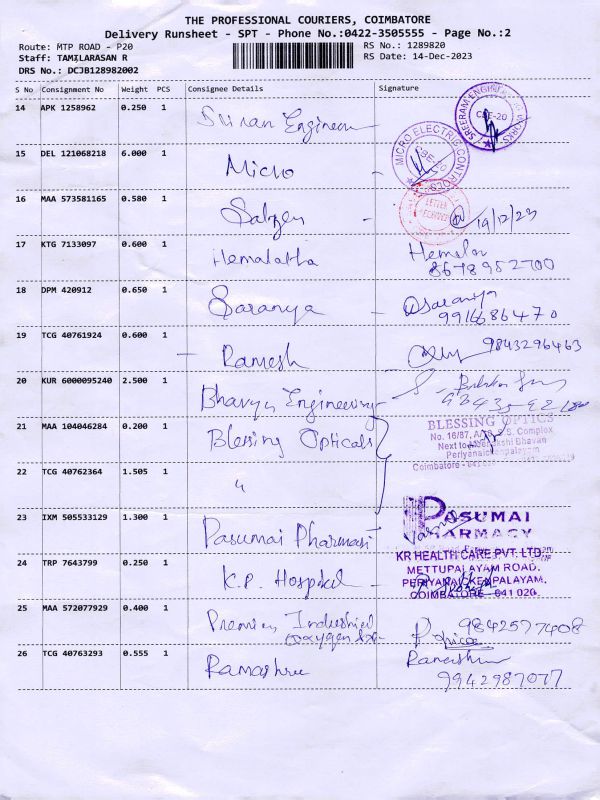 THE PROFESSIONAL COURIERS, COIMBATORE
Delivery Runsheet - SPT - Phone No.:0422-3505555 - Page No.:2
Route: MTP ROAD - P20 RS No.: 1289820
Staff: TAMILARASAN R RS Date: 14-Dec-2023
DRS No.: DCJB128982002
S No Consignment No Weight PCS Consignee Details Signature
14 APK 1258962 0.250 1 SREERAM ENGINEERING WORKS CBE-20
15 DEL 121068218 6.000 1 Micro MICRO ELECTRIC CONTROLS CBE-20
16 MAA 573581165 0.580 1 LETTER RECEIVED
17 KTG 7133097 0.600 1 Hemalatha
8678952700
18 DPM 420912 0.650 1 Saranya Saranya
9916686470
19 TCG 40761924 0.600 1 Ramesh 9843296463
20 KUR 6000095240 2.500 1 Bhavya Engineering
21 MAA 104046284 0.200 1 Blessing Opticals BLESSING OPTICS
No. 16/87, S. Complox
Next to Meenakshi Bhavan
Periyanaickenpalayam
Coimbatore
22 TCG 40762364 1.505 1 "
23 IXM 505533129 1.300 1 Pasumai Pharmasi PASUMAI
PHARMACY
24 TRP 7643799 0.250 1 K.P. Hospital KR HEALTH CARE PVT. LTD.
METTUPALAYAM ROAD,
PERIYANAICKENPALAYAM,
COIMBATORE - 641 020.
25 MAA 572077929 0.400 1 Premier Industrial
oxygen 9842577408
26 TCG 40763293 0.555 1 Ramashree
9942987077